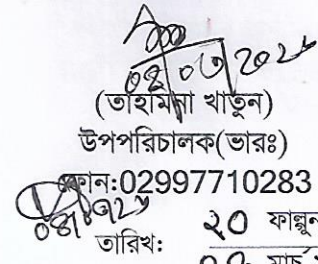 ০৪/০৩/২০২৫
(তাহামিনা খাতুন)
উপপরিচালক(ভারঃ)
ফোন:02997710283
তারিখ: ২০ ফাল্গুন
০৪ মার্চ